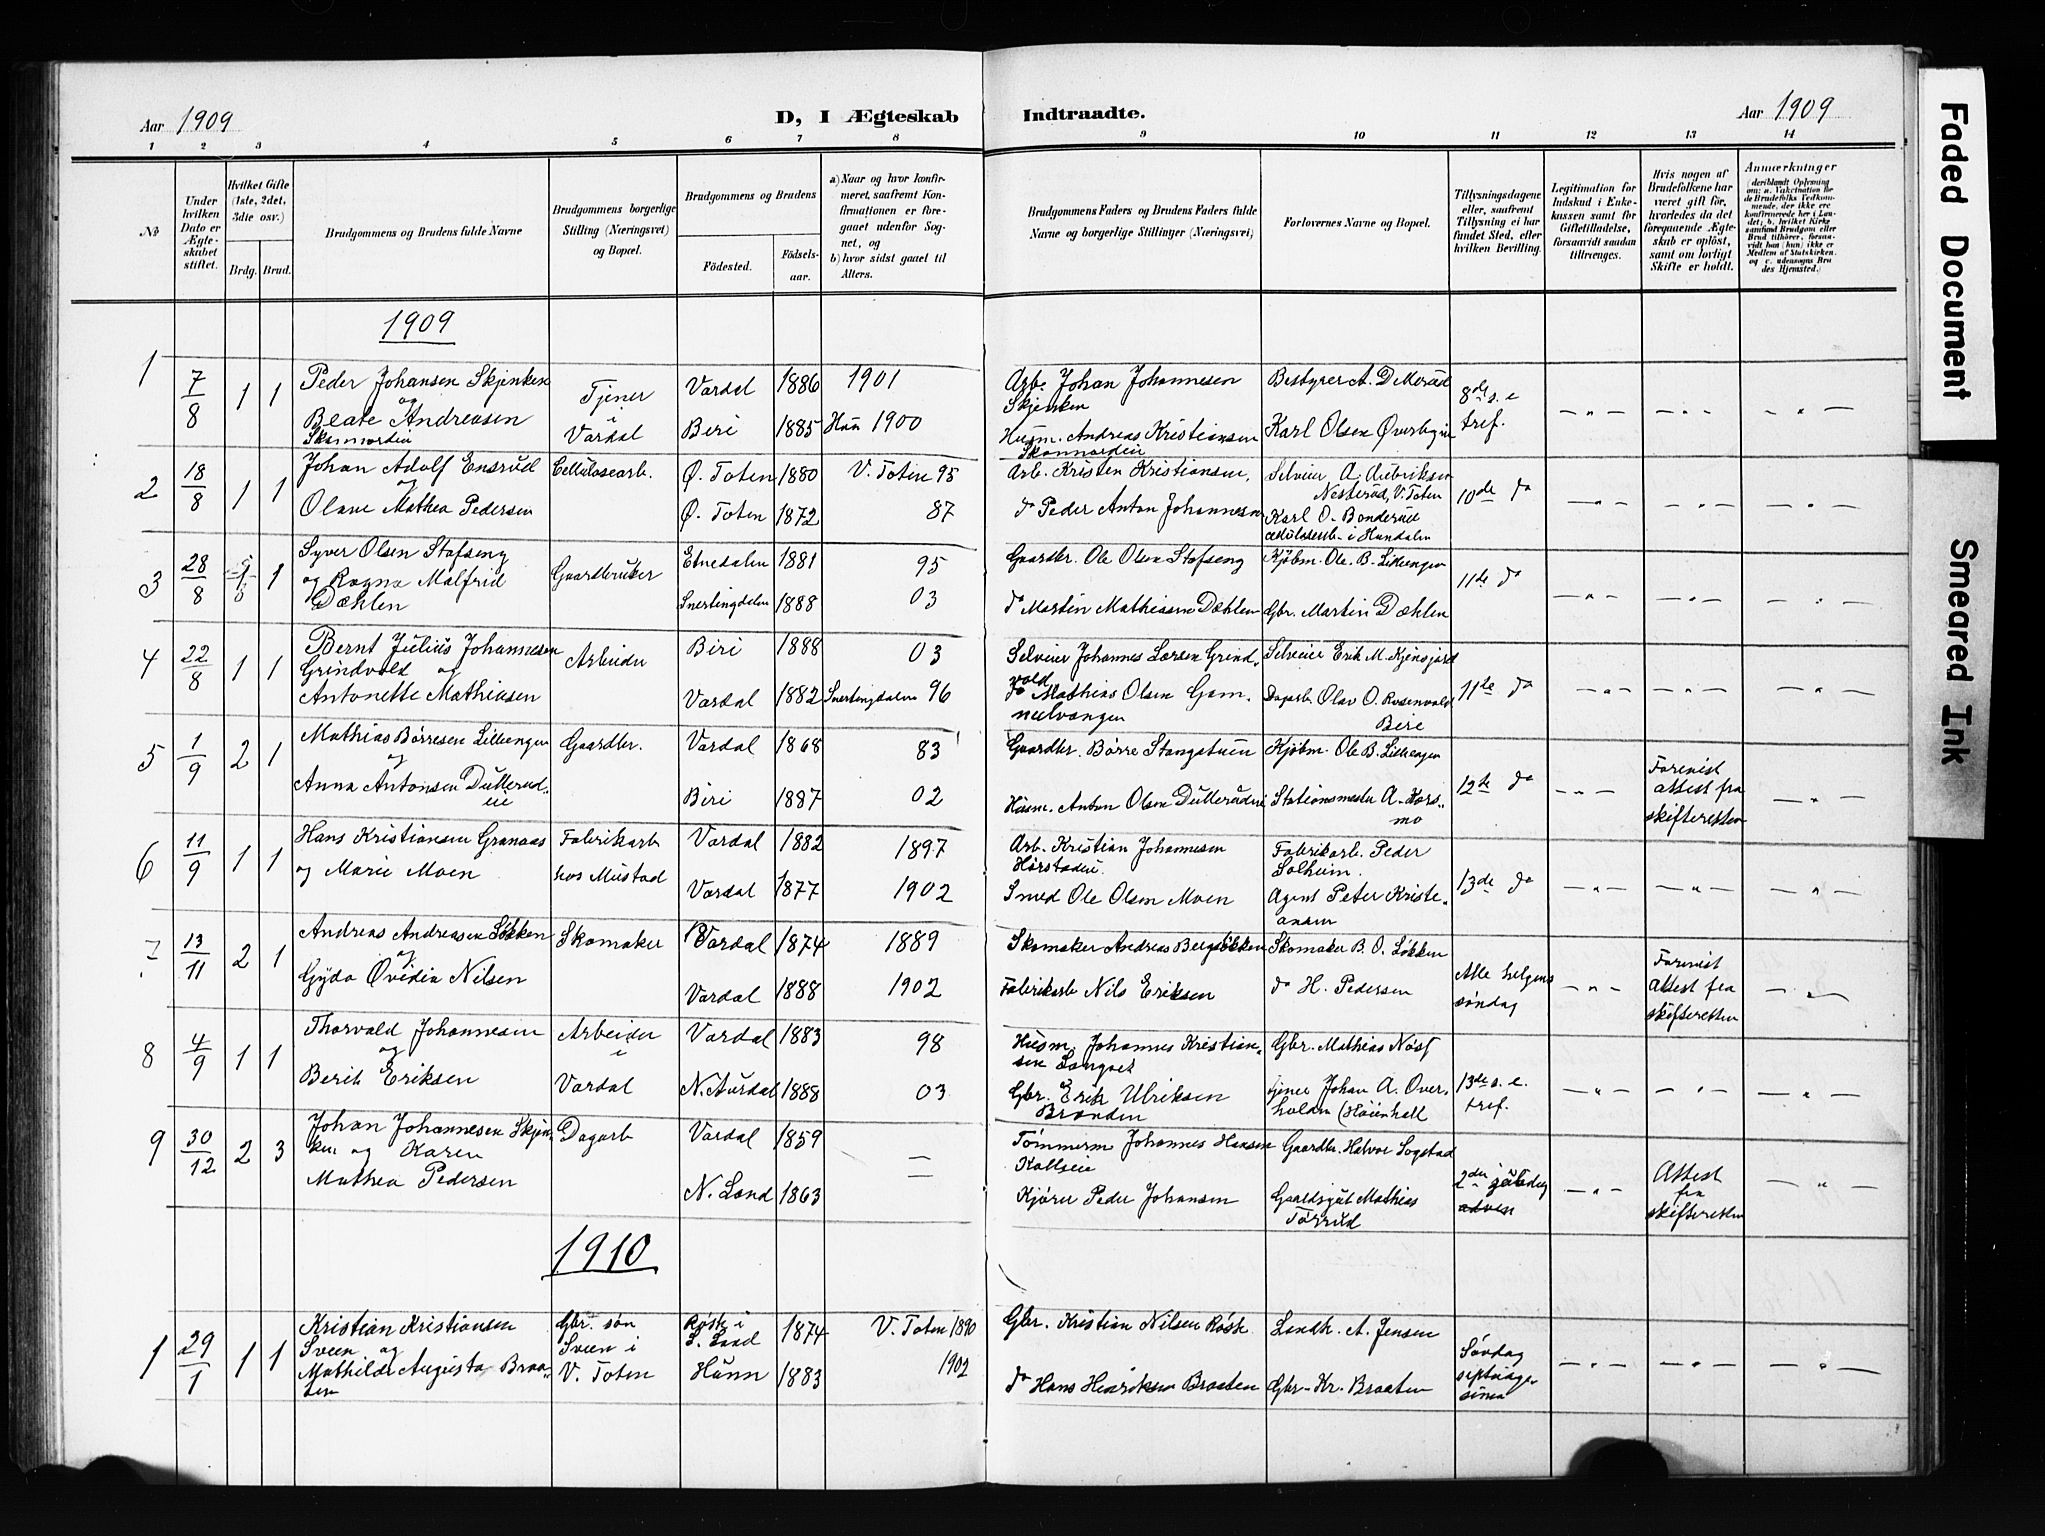 Aar 1909
D, I Ægteskab
Indtraadte.
Aar 1909
1 2 3 4 5 6 7 8 9 10 11 12 13 14
No
Under hvilken Dato er Ægteskabet stiftet.
Hvilket Gifte (1ste, 2det, 3die osv.)
Brdg. Brud.
Brudgommens og Brudens fulde Navne
Brudgommens borgerlige Stilling (Næringsvei) og Bopæl.
Brudgommens og Brudens
Födested.
Födselsaar.
a) Naar og hvor konfirmeret, saafremt Konfirmationen er foregaaet udenfor Sognet, og
b) hvor sidst gaaet til Alters.
Brudgommens Faders og Brudens Faders fulde Navne og borgerlige Stillinger (Næringsvei)
Forlovernes Navne og Bopæl.
Tillysningsdagene eller, saafremt Tillysning ei har fundet Sted, efter hvilken Bevilling.
Legitimation for Indskud i Enkekassen samt for Giftetilladelse, forsaavidt saadan tiltrænges.
Hvis nogen af Brudefolkene har været gift før, hvorledes da det foregaaende Ægteskab er oplöst, samt om lovligt Skifte er holdt.
Anmærkninger
(deriblandt Oplysning om: a. Vakcination for de Brudefolks Vedkommende, der ikke ere konfirmerede her i Landet; b. hvilket Kirkesamfund Brudgom eller Brud tilhörer, forsaavidt han (hun) ikke er Medlem af Statskirken, og c. udensogns Brudes Hjemsted.)
1909
1 7/8 1 1 Peder Johansen Skjenken og Beate Andreasen Skonnordeie
Tjener i Vardal
Vardal 1886 1901
Biri 1885 Hun 1900
Arb. Johan Johannesen Skjenken
Husm. Andreas Kristiansen Skonnordeie
Bestyrer A. Dillerud
Karl Olsen Øverbye
8de s. e. tref.
— " — — " — — " —
2 18/8 1 1 Johan Adolf Ensrud og Olave Mathea Pedersen
Cellulosearb.
Ø. Toten 1880 V. Toten 95
Ø. Toten 1872 87
Arb. Kristen Kristiansen,
do Peder Anton Johannesen
Selveier A. Nesterud, V. Toten
Karl O. Bonderud cellulosearb. i Hundalen
10de do
— " — — " — — " —
3 28/8 1 1 Syver Olsen Stafseng og Ragna Malfrid Dæhlen
Gaardbruker
Etnedalen 1881 95
Snertingdalen 1888 03
Gaardbr. Ole Olsen Stafseng
do Martin Mathisen Dæhlen
Kjøbm. Ole B. Lillengen
Gbr. Martin Dæhlen
11de do
— " — — " — — " —
4 22/8 1 1 Bernt Julius Johannesen Grindvold og Antonette Mathiasen
Arbeider
Biri 1888 03
Vardal 1882 Snertingdalen 96
Selveier Johannes Larsen Grindvold
do Mathias Olsen Gammelvangen
Selveier Erik M. Kjensjord
Dagarb. Olav O. Rosenvold Biri
11te do
— " — — " — — " —
5 1/9 2 1 Mathias Børresen Lillengen og Anna Antonsen Dullerudeie
Gaardbr.
Vardal 1868 83
Biri 1887 02
Gaardbr. Børre Stangstuen
Husm. Anton Olsen Dullerudeie
Kjøbm. Ole B. Lillengen
Stationsmester A. Korsmo
12te do
— " —
Forevist attest fra skifteretten
— " —
6 11/9 1 1 Hans Kristiansen Granaas og Marie Moen
Fabrikarb hos Mustad
Vardal 1882 1897
Vardal 1877 1902
Arb. Kristian Johannesen Hørstadeie
Smed Ole Olsen Moen
Fabrikarb. Peder Solheim.
Agent Peter Kristeansen
13de do
— " — — " — — " —
7 13/11 2 1 Andreas Andreasen Løkken og Gyda Ovidia Nilsen
Skomaker
Vardal 1874 1889
Vardal 1888 1902
Skomaker Andreas Bergsløkken
Fabrikarb Nils Eriksen
Skomaker B. O. Løkken
do H. Pedersen
Alle helgens søndag
— " —
Forevist attest fra skifteretten
— " —
8 4/9 1 1 Thorvald Johannesen og Berit Eriksen
Arbeider i Vardal
Vardal 1883 98
N. Aurdal 1888 03
Husm. Johannes Kristiansen Langset
Gbr. Erik Ulriksen Branden
Gbr. Mathias Nøss
tjener Johan A. Overholden (Høienhall
13de s. e. tref.
— " — — " — — " —
9 30/12 2 3 Johan Johannesen Skjenken og Karen Mathea Pedersen
Dagarb
Vardal 1859 —
N. Land 1863 —
Tømmerm Johannes Hansen Kallseie
Kjører Peder Johansen
Gaardbr. Halvor Sogstad
Gaardsgut Mathias Tørrud
2den juledag
— " —
Attest fra skifteretten
— " —
1910
1 29/1 1 1 Kristian Kristiansen Sveen og Mathilde Augusta Braaten
Gbr. søn Sveen i V. Toten
Røste i S. Land 1874 V. Toten 1890
Hunn 1883 1902
Gbr. Kristian Nilsen Røste
do Hans Henriksen Braaten
Landh. A. Jensen
Gbr. Kr. Braaten
Søndag septuagesima
— " — — " — — " —
Faded Document
Smeared Ink